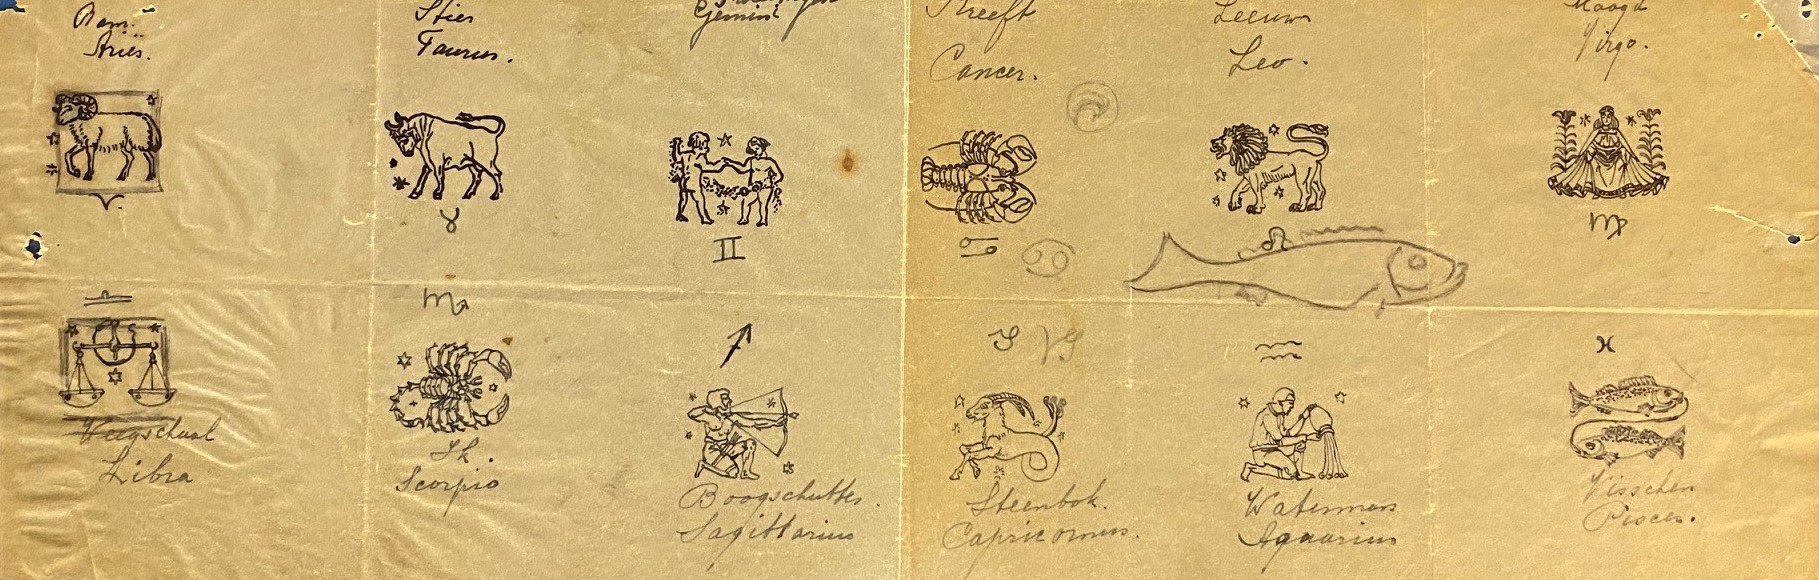 Ram.
Aries.
Stier
Taurus.
Gemini
Kreeft
Cancer.
Leeuw
Leo.
Maagd
Virgo.
♉
♊
♋ ♋
♌
♍
♎
♏
♐
♑ ♑
♒
♓
Weegschaal
Libra
Sk.
Scorpio
Boogschutter.
Sagittarius
Steenbok.
Capricornus.
Waterman
Aquarius
Visschen
Pisces.